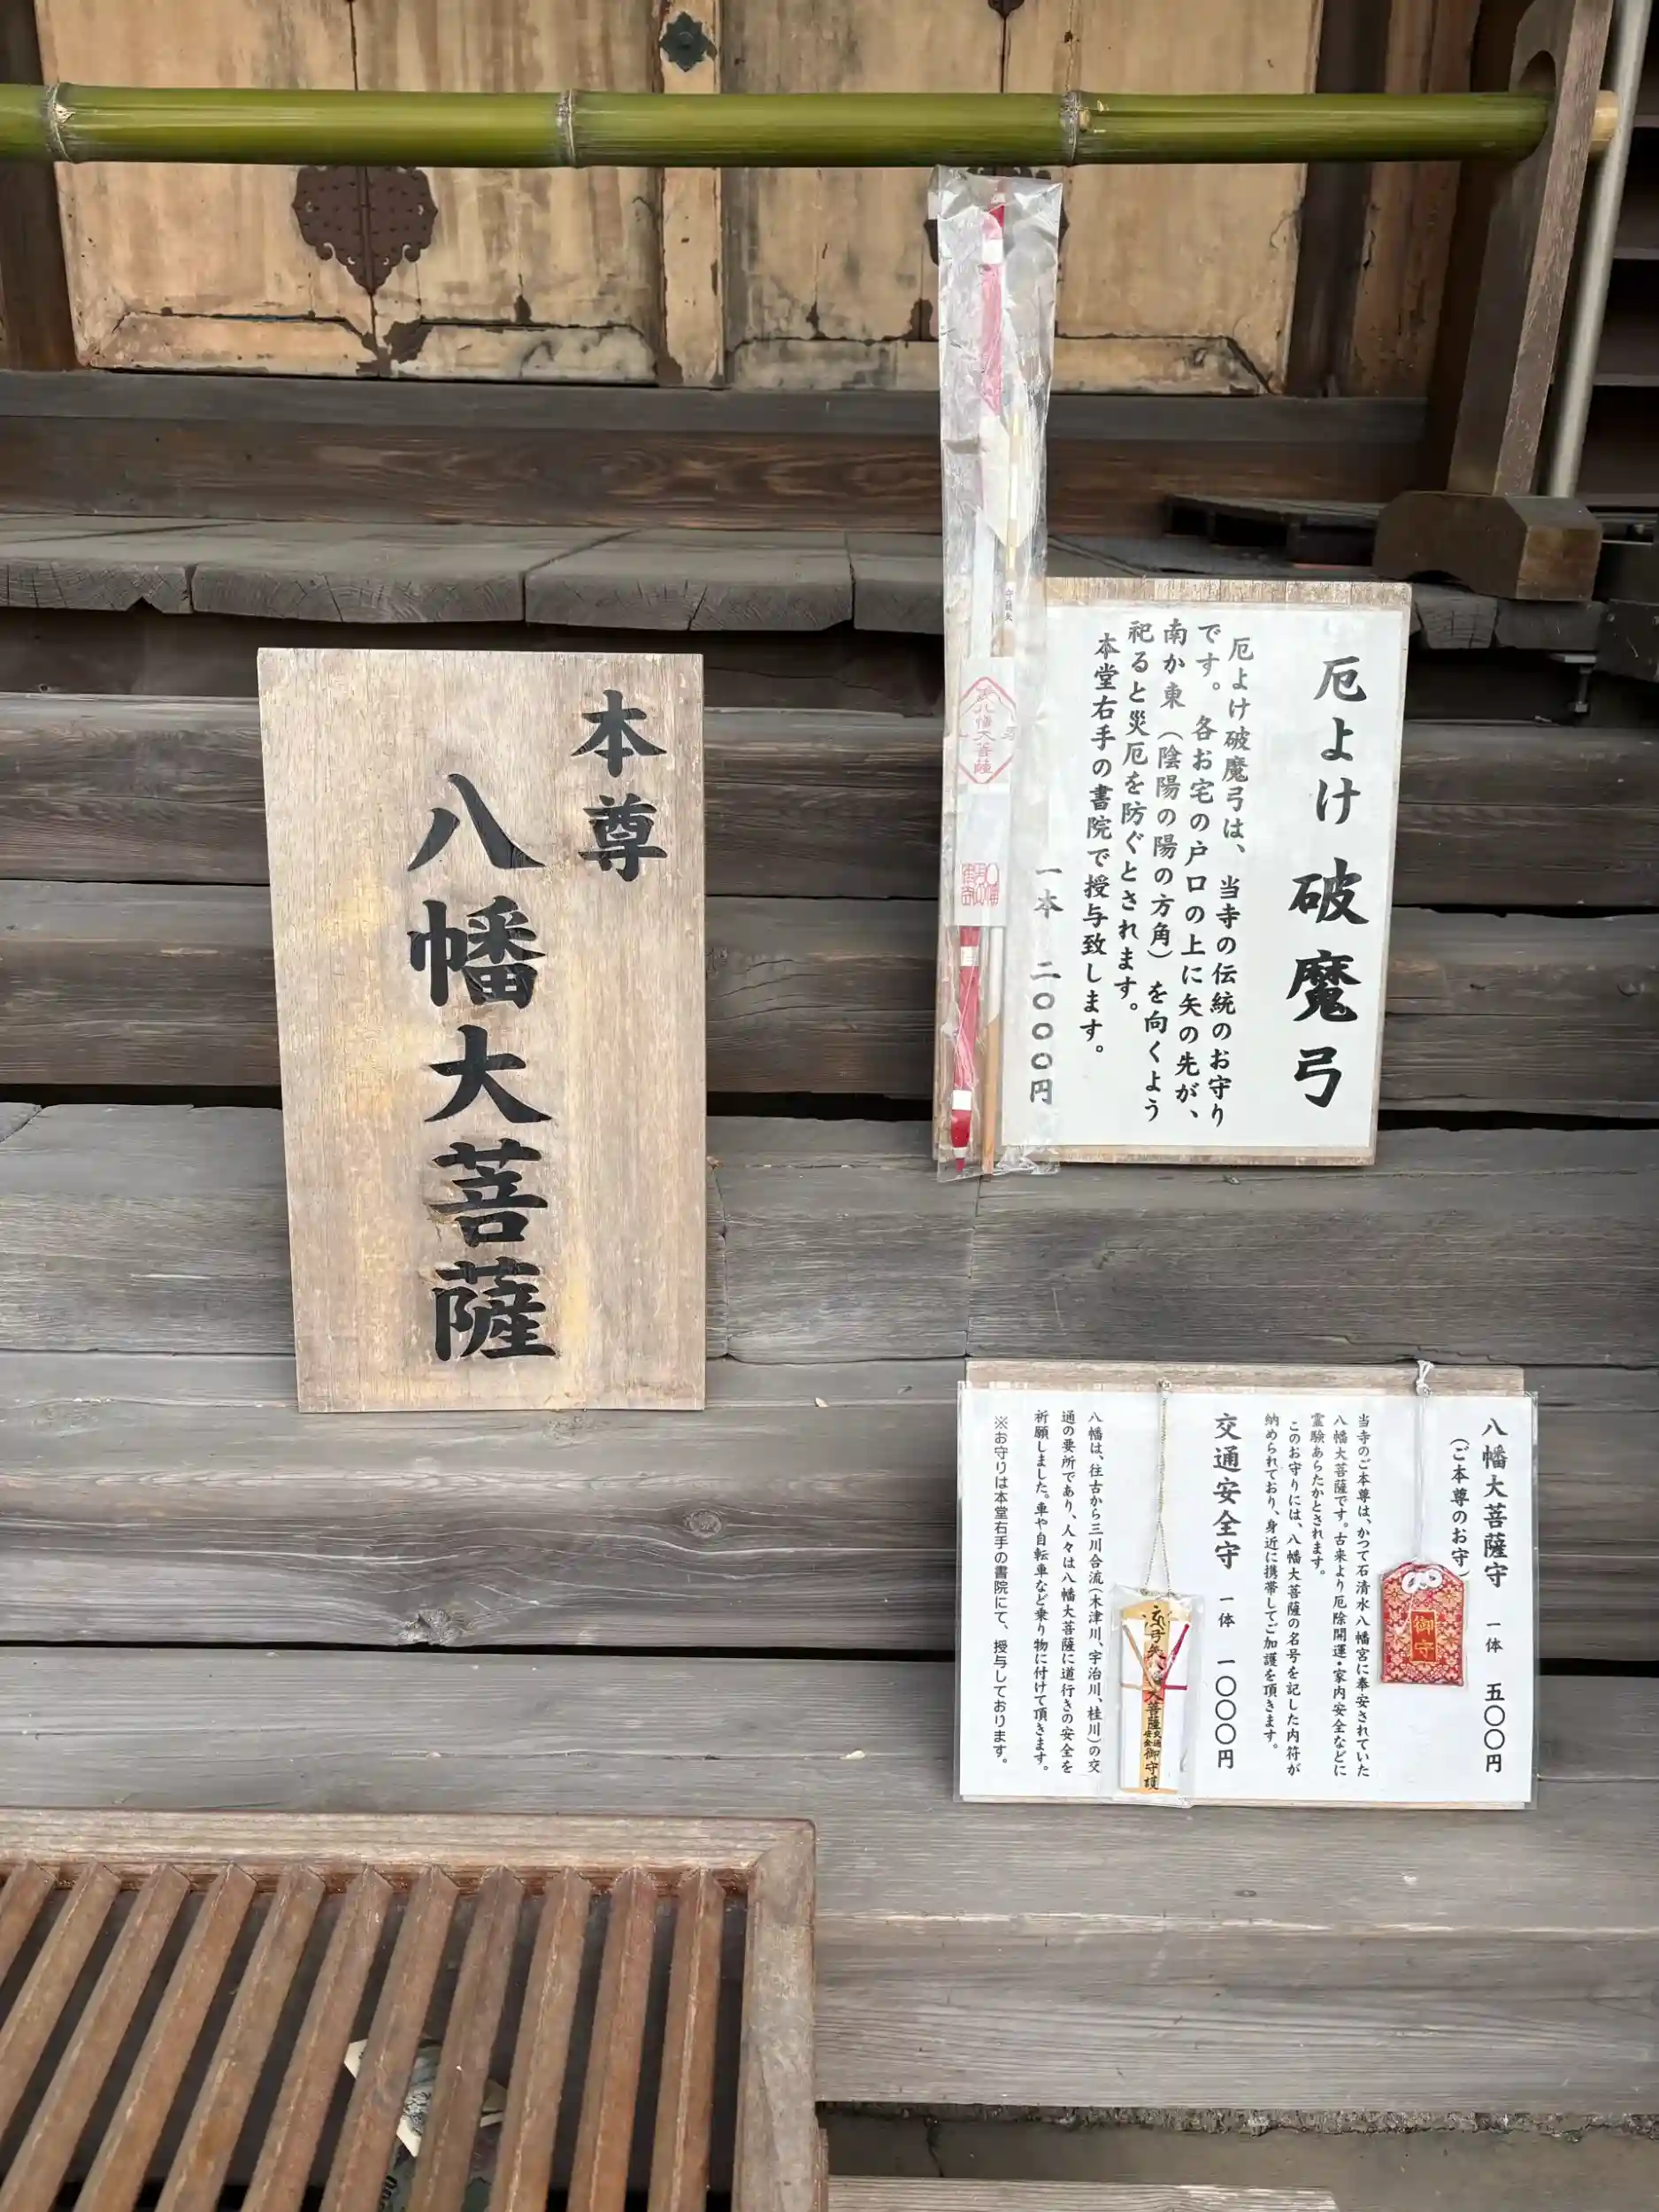 本尊
八幡大菩薩
厄よけ破魔弓
厄よけ破魔弓は、当寺の伝統のお守り
です。各お宅の戸口の上に矢の先が、
南か東(陰陽の陽の方角)を向くよう
祀ると災厄を防ぐとされます。
本堂右手の書院で授与致します。
一本 二〇〇〇円
八幡大菩薩
八幡大菩薩守 一体 五〇〇円
(ご本尊のお守)
当寺のご本尊は、かつて石清水八幡宮に奉安されていた
八幡大菩薩です。古来より厄除開運・家内安全などに
霊験あらたかとされます。
このお守りには、八幡大菩薩の名号を記した内符が
納められており、身近に携帯してご加護を頂きます。
御守
交通安全守 一体 一〇〇〇円
八幡は、往古から三川合流(木津川、宇治川、桂川)の交
通の要所であり、人々は八幡大菩薩に道行きの安全を
祈願しました。車や自転車など乗り物に付けて頂きます。
※お守りは本堂右手の書院にて、授与しております。
大菩薩交通安全御守護